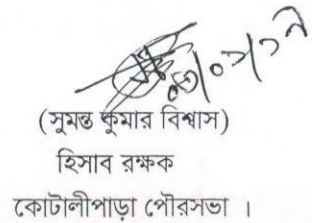 (সুমন্ত কুমার বিশ্বাস)
হিসাব রক্ষক
কোটালীপাড়া পৌরসভা ।